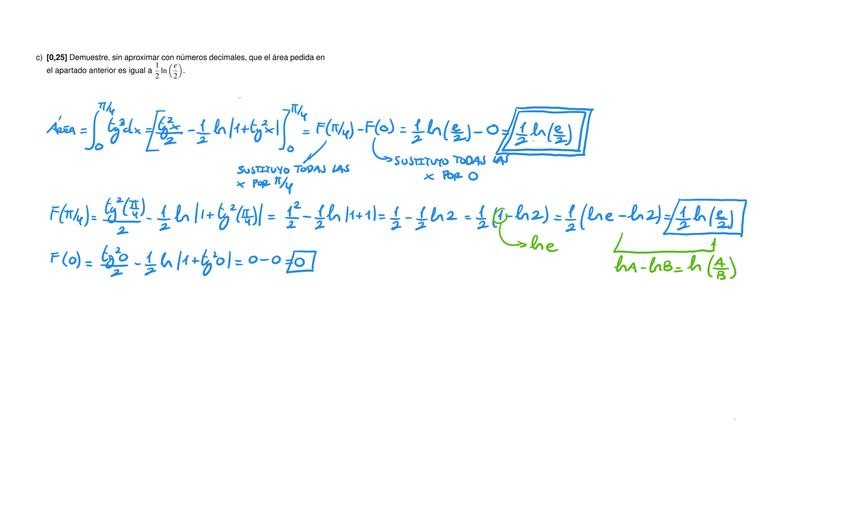 c) [0,25] Demuestre, sin aproximar con números decimales, que el área pedida en
el apartado anterior es igual a 1/2 ln(e/2).
ÁREA = ∫₀^(π/4) tg³x dx = [tg²x/2 - 1/2 ln|1+tg²x|]₀^(π/4) = F(π/4) - F(0) = 1/2 ln(e/2) - 0 = 1/2 ln(e/2)
SUSTITUYO TODAS LAS
X POR π/4
SUSTITUYO TODAS LAS
X POR 0
F(π/4) = tg²(π/4)/2 - 1/2 ln|1+tg²(π/4)| = 1²/2 - 1/2 ln|1+1| = 1/2 - 1/2 ln2 = 1/2 (1 - ln2) = 1/2 (lne - ln2) = 1/2 ln(e/2)
lne
lnA - lnB = ln(A/B)
F(0) = tg²0/2 - 1/2 ln|1+tg²0| = 0 - 0 = 0